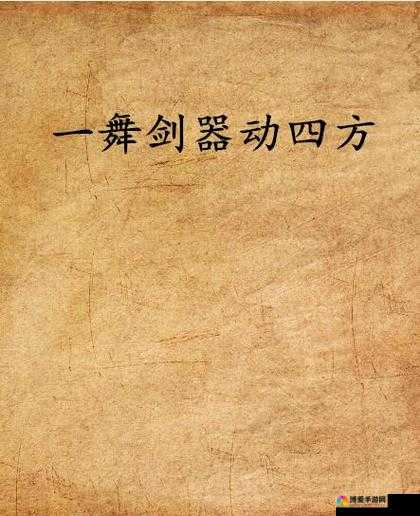 一舞剑器动四方
博爱手游网